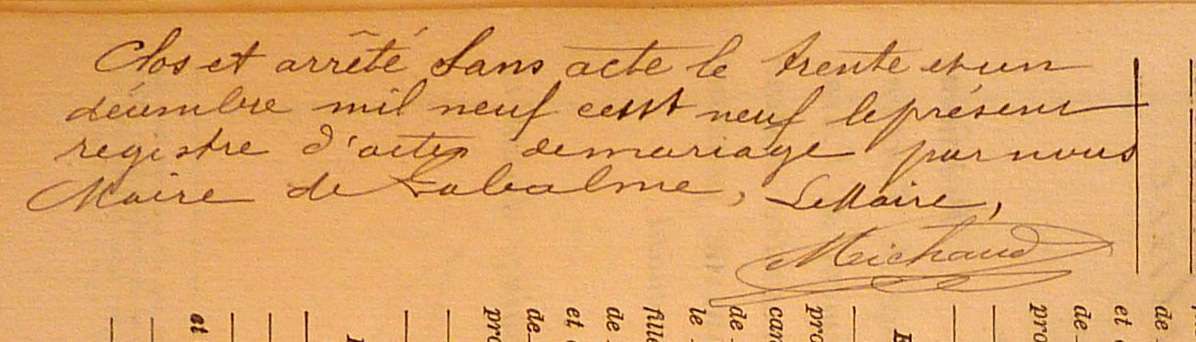 Clos et arrêté sans acte le trente et un
décembre mil neuf cent neuf le présent
registre d'actes de mariage par nous
Maire de Labalme, Le Maire,
Michaud
et
pro
de
et
de
fille
le
de
car
pro
pro
de
et
de